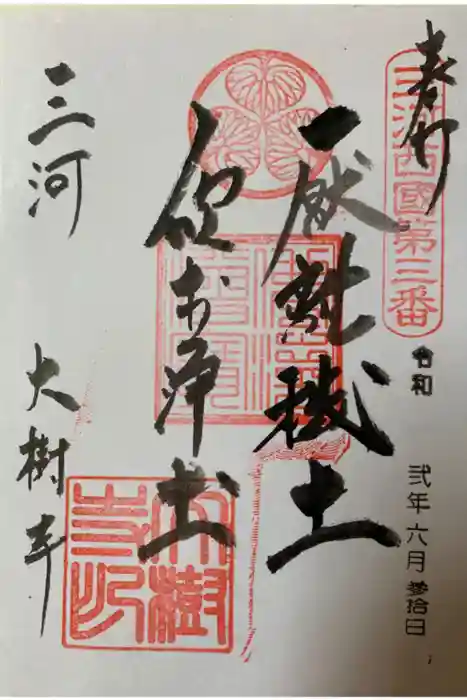 奉拝
三河西國第三番
令和
弐年六月参拾日
厭離穢土
欣求浄土
三河
大樹寺
大樹寺印